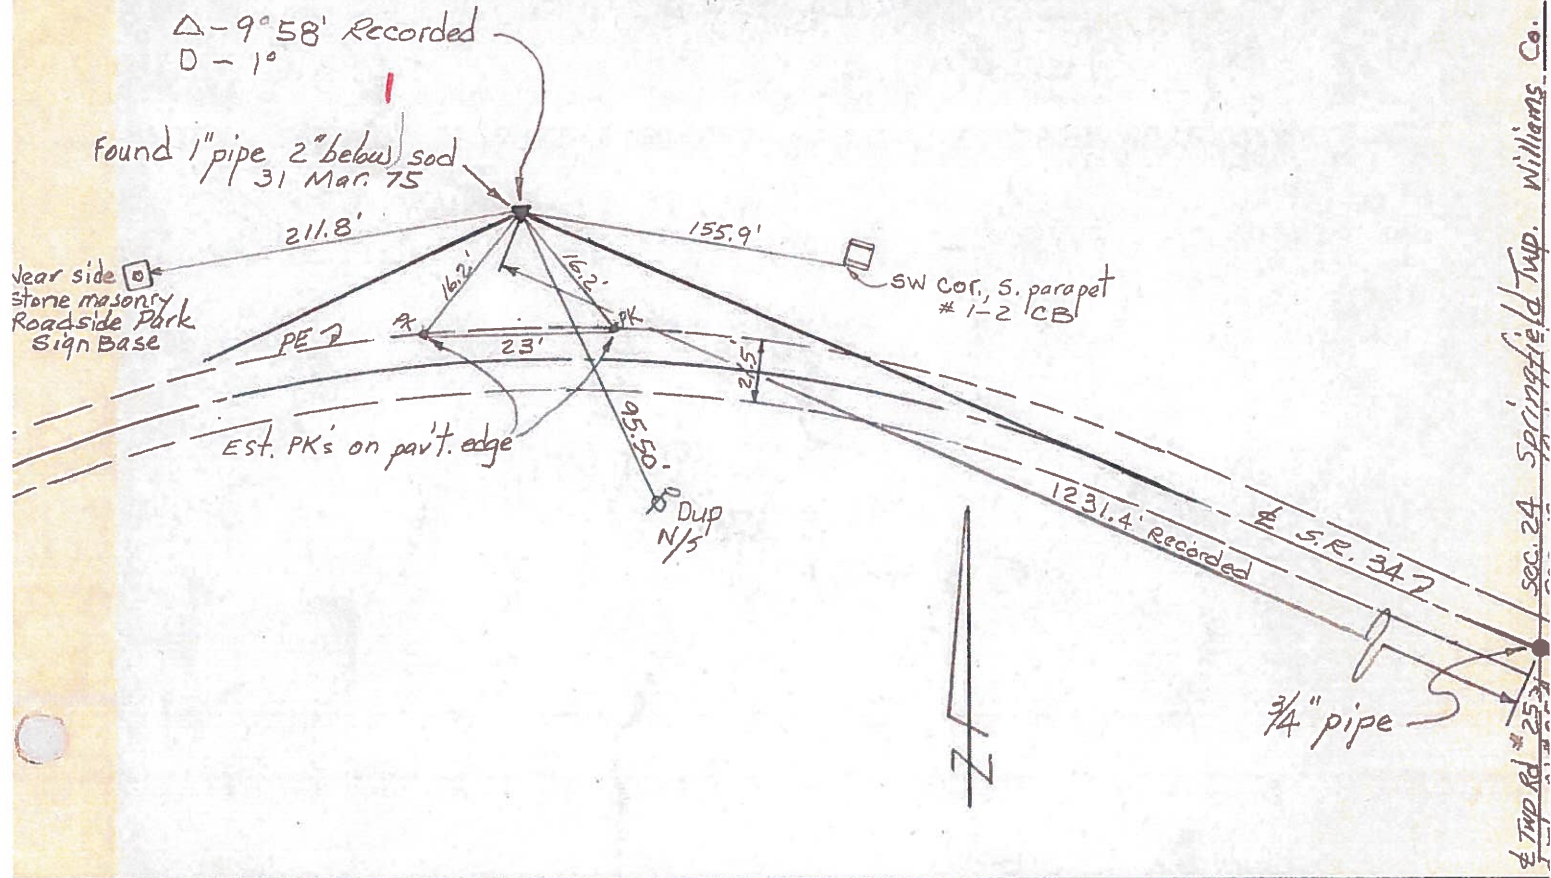 △ - 9°58' Recorded
D - 1°
Found 1" pipe 2" below sod
31 Mar. 75
211.8'
155.9'
Near side
Stone masonry
Roadside Park
Sign Base
16.2'
16.2'
SW cor., S. parapet
# 1-2 CB
PE
PK
23'
21.5'
Est. PK's on pav't. edge
95.50'
Dup
N/S
1231.4' Recorded
℄ S.R. 34
3/4" pipe
N
Sec. 24 Springfield Twp. Williams Co.
℄ Twp Rd #253